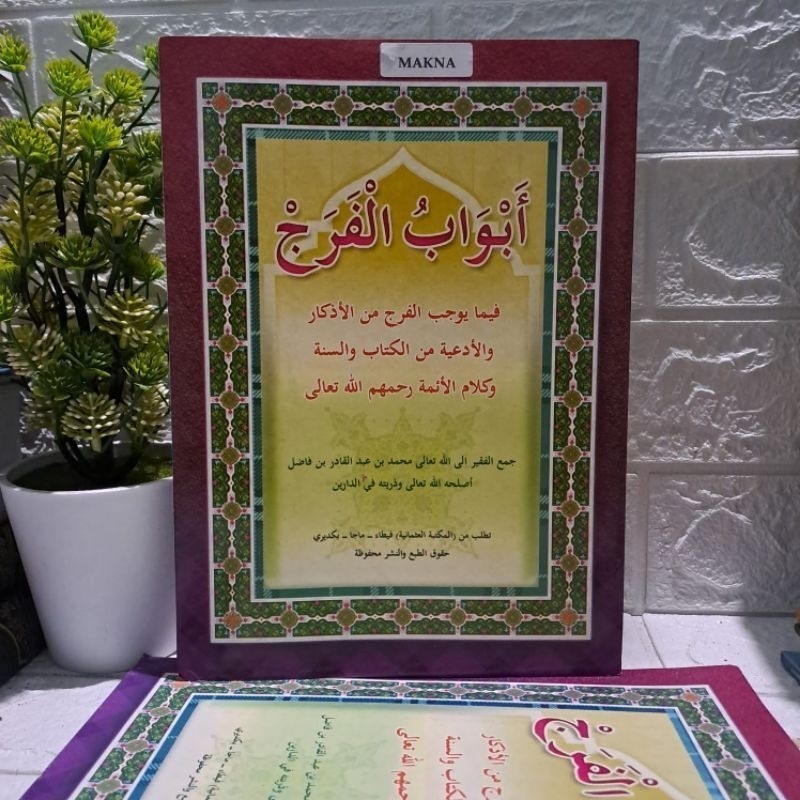 MAKNA
أَبْوَابُ الْفَرَجْ
فيما يوجب الفرج من الأذكار
والأدعية من الكتاب والسنة
وكلام الأئمة رحمهم الله تعالى
جمع الفقير الى الله تعالى محمد بن عبد القادر بن فاضل
أصلحه الله تعالى وذريته في الدارين
تطلب من (المكتبة العثمانية) فيطاء ــ ماجا ــ بكديري
حقوق الطبع والنشر محفوظة
الْفَرَجْ
من الأذكار
الكتاب والسنة
رحمهم الله تعالى